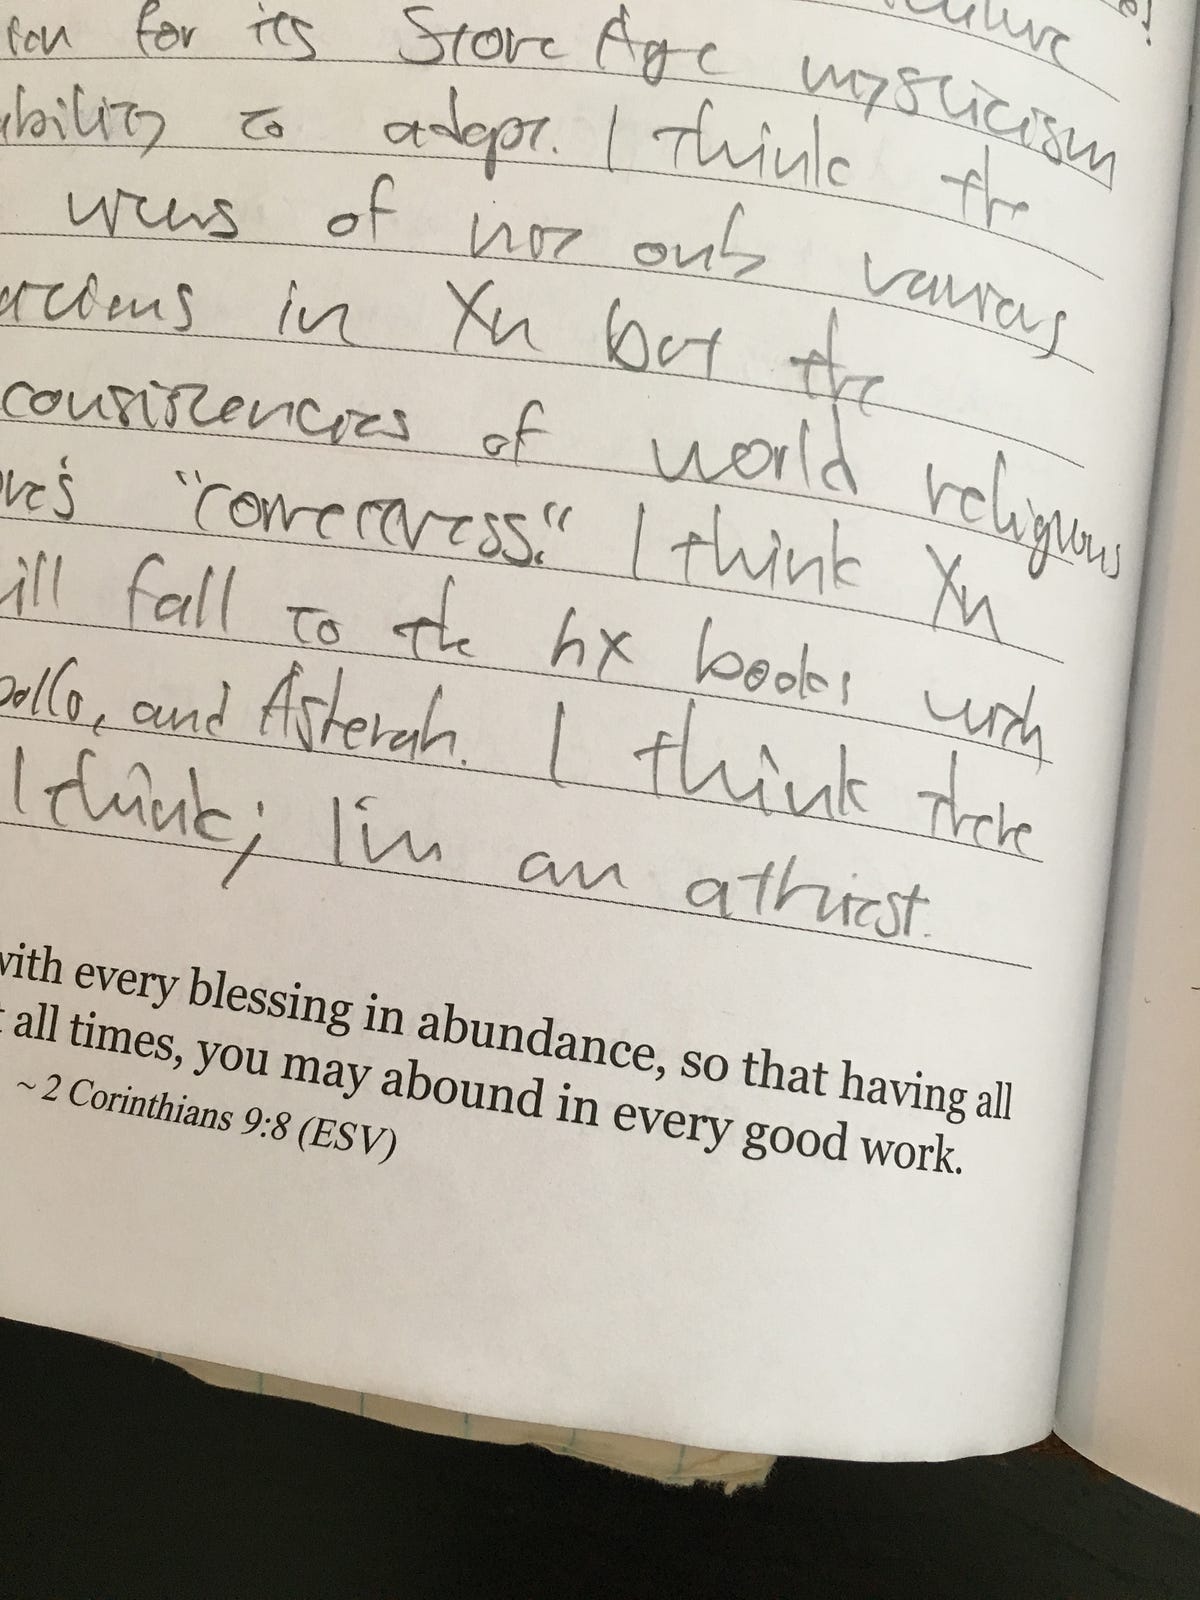 for its Stone Age mysticism
ability to adapt. I think the
views of not only various
in Xn but the
consistencies of world religious
"correctness." I think Xn
ill fall to the hx books with
pollo, and Asterah. I think there
I think; I'm an athiest.
with every blessing in abundance, so that having all
all times, you may abound in every good work.
~ 2 Corinthians 9:8 (ESV)